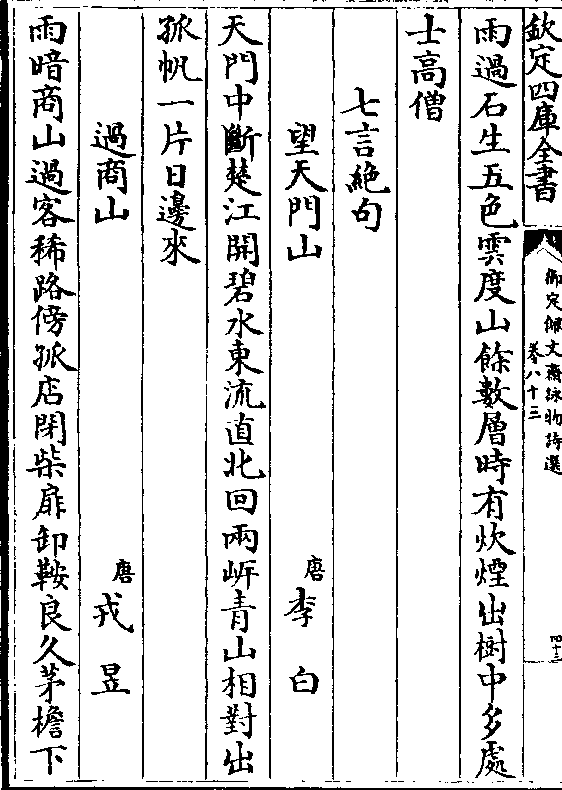 欽定四庫全書
御定佩文齋詠物詩選
卷八十三
四十三
雨過石生五色雲度山餘數層時有炊煙出樹中多處
士高僧
七言絶句
望天門山
唐李白
天門中斷楚江開碧水東流直北回兩岍青山相對出
孤帆一片日邊來
過商山
唐戎昱
雨暗商山過客稀路傍孤店閉柴扉卸鞍良久茅檐下